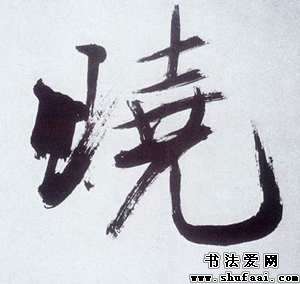 燒
书法爱网
www.shufaai.com